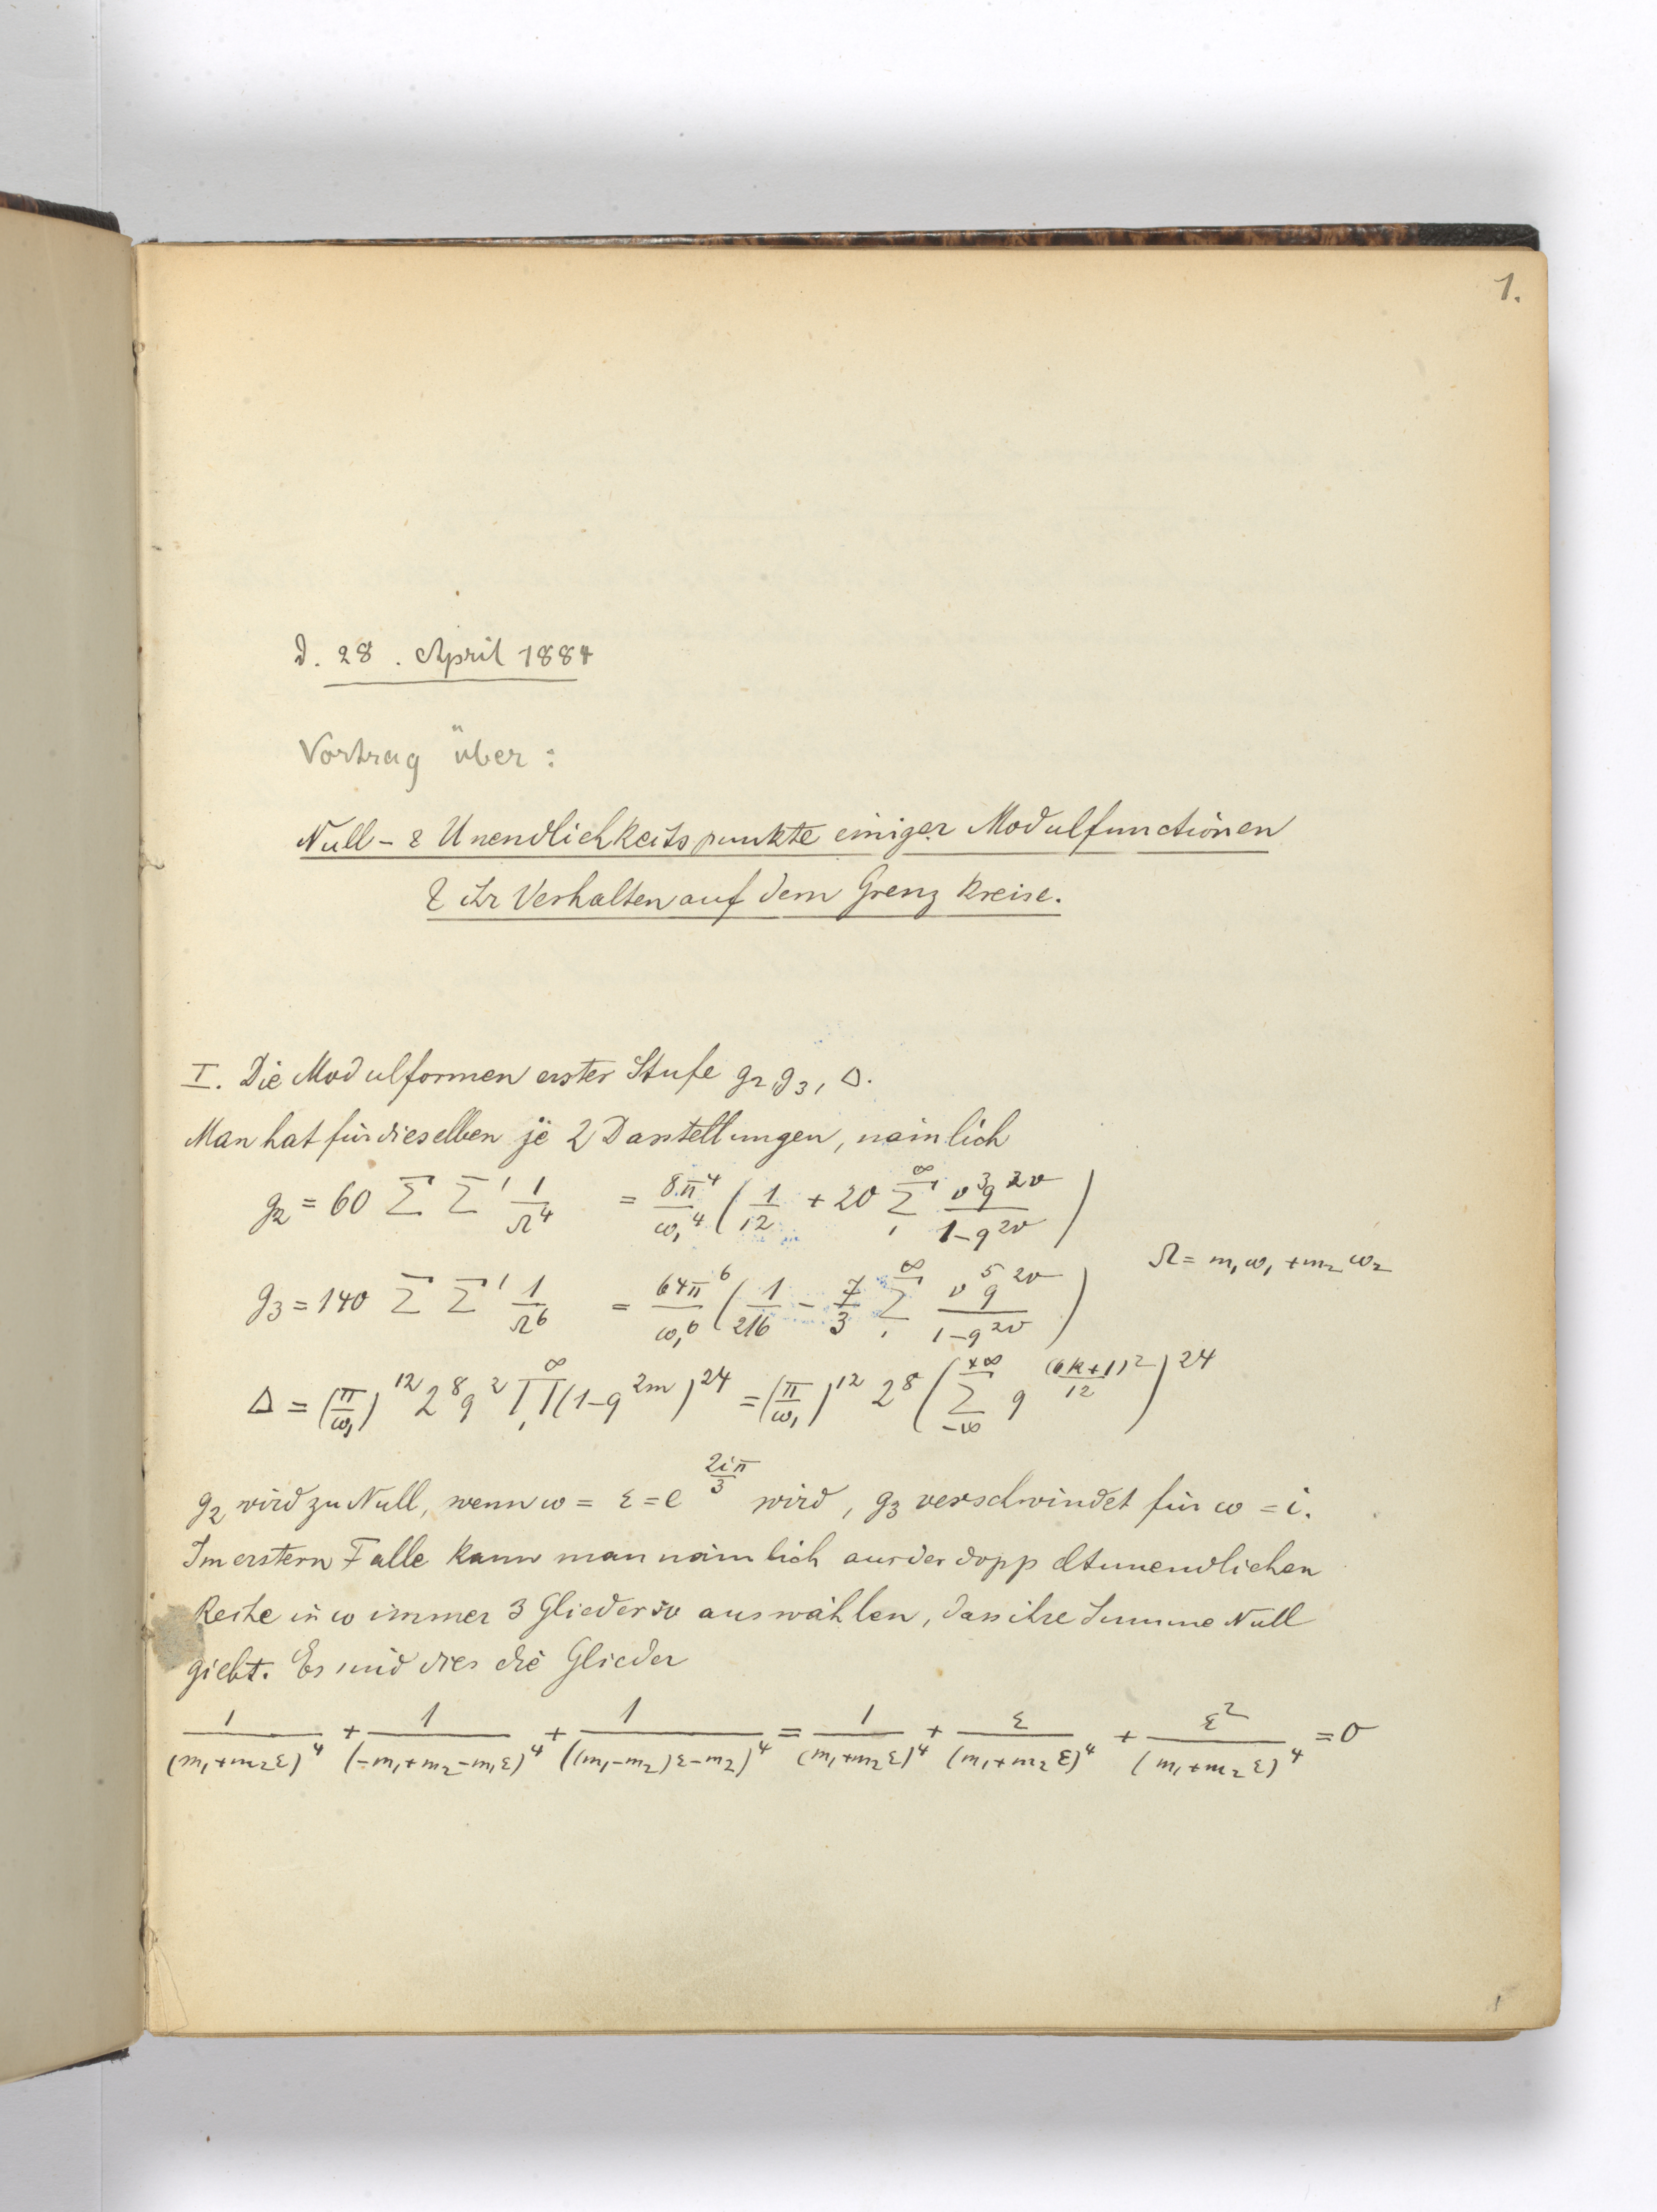 1.
d. 28. April 1884
Vortrag über:
Null- & Unendlichkeitspunkte einiger Modulfunctionen
& ihr Verhalten auf dem Grenzkreise.
I. Die Modulformen erster Stufe g₂, g₃, Δ.
Man hat für dieselben je 2 Darstellungen, nämlich
g₂ = 60 Σ Σ' 1/Ω⁴ = 8π⁴/ω₁⁴ (1/12 + 20 Σ₁^∞ ν³q^{2ν}/(1-q^{2ν}))
Ω = m₁ω₁ + m₂ω₂
g₃ = 140 Σ Σ' 1/Ω⁶ = 64π⁶/ω₁⁶ (1/216 - 7/3 Σ₁^∞ ν⁵q^{2ν}/(1-q^{2ν}))
Δ = (π/ω₁)¹² 2⁸q² Π₁^∞ (1-q^{2m})²⁴ = (π/ω₁)¹² 2⁸ (Σ_{-∞}^{+∞} q^{(6k+1)²/12})²⁴
g₂ wird zu Null, wenn ω = ε = e^{2iπ/3} wird, g₃ verschwindet für ω = i.
Im erstern Falle kann man nämlich aus der doppeltunendlichen
Reihe in ω immer 3 Glieder so auswählen, dass ihre Summe Null
giebt. Es sind dies die Glieder
1/(m₁+m₂ε)⁴ + 1/(-m₁+m₂-m₁ε)⁴ + 1/((m₁-m₂)ε-m₂)⁴ = 1/(m₁+m₂ε)⁴ + ε/(m₁+m₂ε)⁴ + ε²/(m₁+m₂ε)⁴ = 0